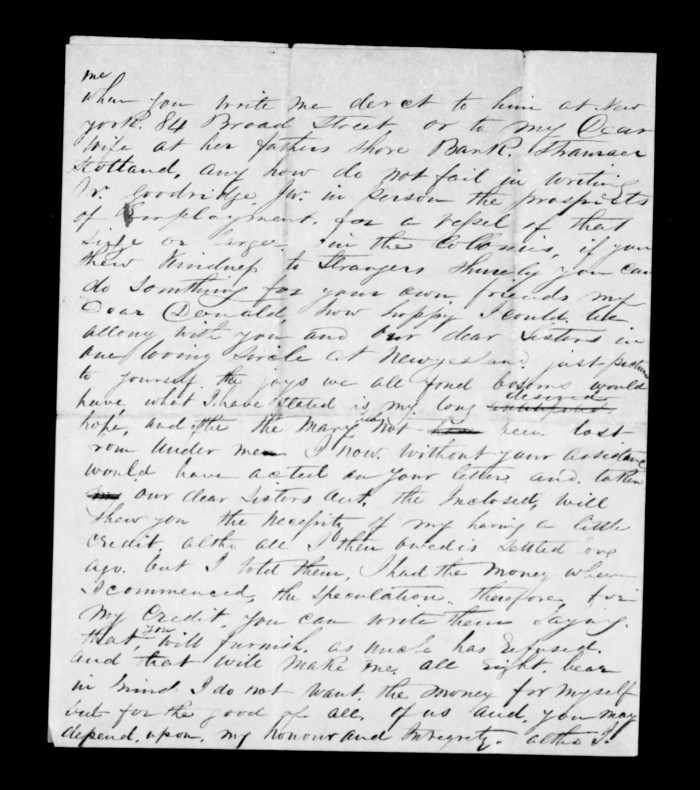 me
when you write me derect to him at New
york. 84 Broad Street or to my Dear
Wife at her fathers Shore Bank.
Scotland, any how do not fail in writing
Goodridge Jnr. in person the prospects
of Employment. for a vessel of that
Size or larger in the Colonies, if you
shew Kindness to Strangers Shurely you can
do Something for your own friends my
Dear Donald, how happy I could be
along with you and our dear Sisters in
one loving Circle at and just picture
to yourself. the joys we all fond bosoms would
have, what I have stated is my long desired
hope, and the Mary had not been lost
from Under me I now without your assistance
would have acted on your letter and. taken
our dear Sisters out, the Inclosed, will
Shew you the Necessity of my having a little
Credit, altho all I then owed is Settled long
ago. but I told them, I had the Money when
I commenced, the Speculation. therefore, for
my Credit. you can write them Saying.
that, you will furnish. as Uncle has Refused.
and that will make me. all right. bear
in mind I do not want. the money for myself
but for the good of all. of us and, you may
depend, upon. my honour and Integrety. altho I.